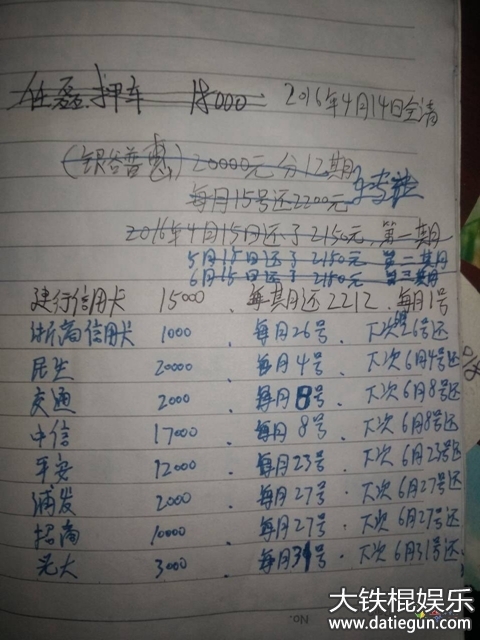 任磊押车 18000. 2016年4月14日全清
(银谷普惠) 20000元分12期
每月15号还2200元
2016年4月15日还了2150元.第一期
5月15日还了2150元 第二期
6月15日还了2150元 第三期
建行信用卡 15000 . 每期还2212 . 每月1号
浙商信用卡 1000 . 每月26号 . 下次26号还
民生 20000 . 每月4号 . 下次6月4号还
交通 2000 . 每月8号 . 下次6月8号还
中信 17000 . 每月8号 . 下次6月8号还
平安 12000 . 每月23号 . 下次6月23号还
浦发 2000 . 每月27号 . 下次6月27号还
招商 10000 . 每月27号 . 下次6月27号还
光大 3000 . 每月31号 . 下次6月31号还
No.
大铁棍娱乐
www.datiegun.com